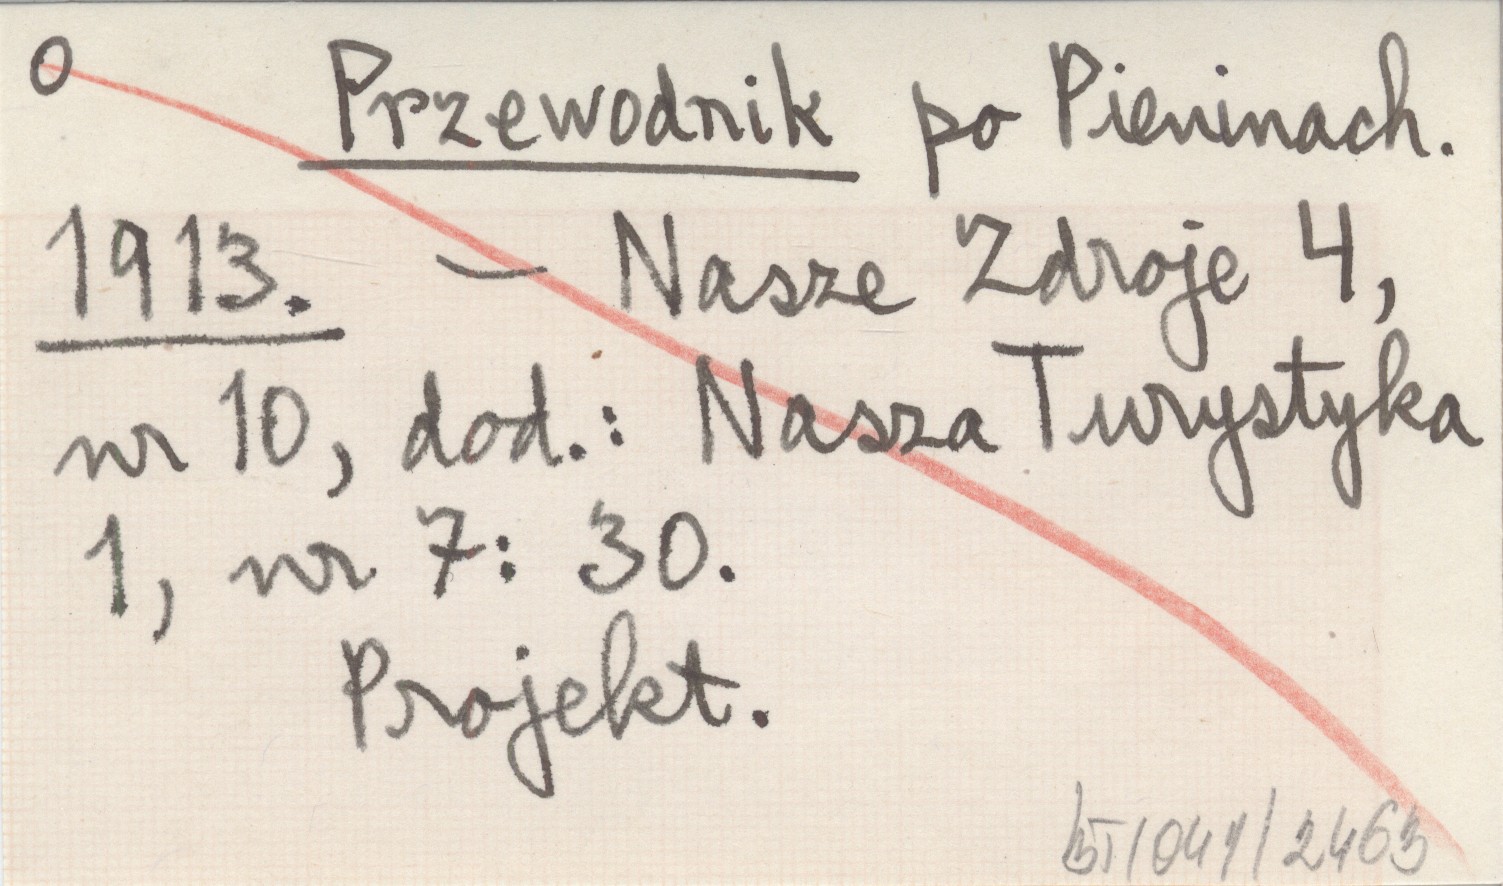 0 Przewodnik po Pieninach.
1913. – Nasze Zdroje 4,
nr 10, dod.: Nasza Turystyka
1, nr 7: 30.
Projekt.
/041/2463